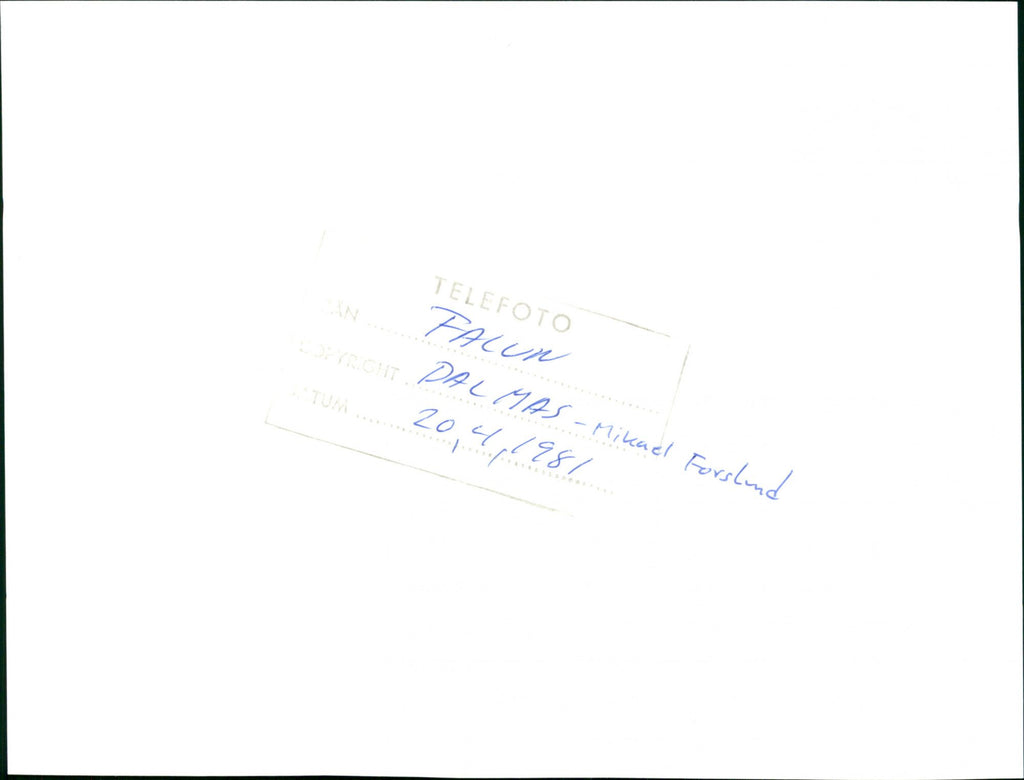 TELEFOTO
FRÅN FALUN
COPYRIGHT DALMAS - Mikael Forslund
DATUM 20,4,1981